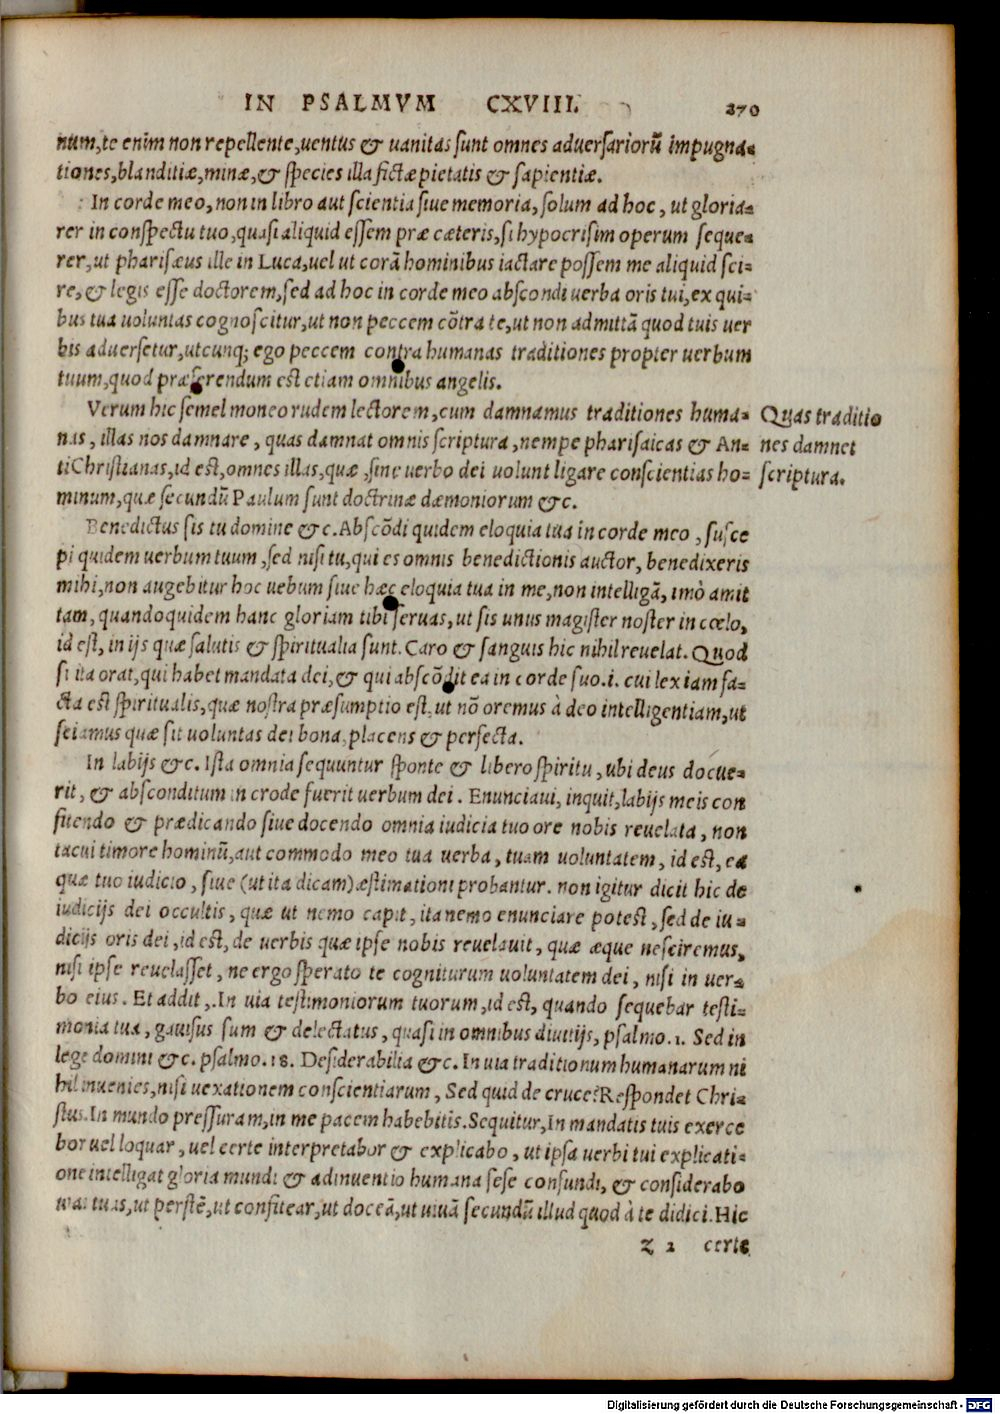 IN PSALMVM CXVIII. 270
num, te enim non repellente, uentus & uanitas sunt omnes aduersariorũ impugna-
tiones, blanditiæ, minæ, & species illa fictæ pietatis & sapientiæ.
In corde meo, non in libro aut scientia siue memoria, solum ad hoc, ut gloria-
rer in conspectu tuo, quasi aliquid essem præ cæteris, si hypocrisim operum seque-
rer, ut pharisæus ille in Luca, uel ut corã hominibus iactare possem me aliquid sci-
re, & legis esse doctorem, sed ad hoc in corde meo abscondi uerba oris tui, ex qui-
bus tua uoluntas cognoscitur, ut non peccem cõtra te, ut non admittã quod tuis uer
bis aduersetur, utcunq; ego peccem contra humanas traditiones propter uerbum
tuum, quod præferendum est etiam omnibus angelis.
Verum hic semel moneo rudem lectorem, cum damnamus traditiones huma-
nas, illas nos damnare, quas damnat omnis scriptura, nempe pharisaicas & An-
tiChristianas, id est, omnes illas, quæ, sine uerbo dei uolunt ligare conscientias ho-
minum, quæ secundũ Paulum sunt doctrinæ dæmoniorum &c.
Quas traditio
nes damnet
scriptura.
Benedictus sis tu domine &c. Abscõdi quidem eloquia tua in corde meo, susce
pi quidem uerbum tuum, sed nisi tu, qui es omnis benedictionis auctor, benedixeris
mihi, non augebitur hoc uebum siue hæc eloquia tua in me, non intelligã, imò amit
tam, quandoquidem hanc gloriam tibi seruas, ut sis unus magister noster in cœlo,
id est, in ijs quæ salutis & spiritualia sunt. Caro & sanguis hic nihil reuelat. Quod
si ita orat, qui habet mandata dei, & qui abscõdit ea in corde suo .i. cui lex iam fa-
cta est spiritualis, quæ nostra præsumptio est, ut nõ oremus à deo intelligentiam, ut
sciamus quæ sit uoluntas dei bona, placens & perfecta.
In labijs &c. Ista omnia sequuntur sponte & libero spiritu, ubi deus docue-
rit, & absconditum in crode fuerit uerbum dei. Enunciaui, inquit, labijs meis con
fitendo & prædicando siue docendo omnia iudicia tuo ore nobis reuelata, non
tacui timore hominũ, aut commodo meo tua uerba, tuam uoluntatem, id est, ea
quæ tuo iudicio, siue (ut ita dicam) æstimationi probantur. non igitur dicit hic de
iudicijs dei occultis, quæ ut nemo capit, ita nemo enunciare potest, sed de iu-
dicijs oris dei, id est, de uerbis quæ ipse nobis reuelauit, quæ æque nesciremus,
nisi ipse reuelasset, ne ergo sperato te cogniturum uoluntatem dei, nisi in uer-
bo eius. Et addit,. In uia testimoniorum tuorum, id est, quando sequebar testi-
monia tua, gauisus sum & delectatus, quasi in omnibus diuitijs, psalmo. 1. Sed in
lege domini &c. psalmo. 18. Desiderabilia &c. In uia traditionum humanarum ni
hil inuenies, nisi uexationem conscientiarum, Sed quid de cruce? Respondet Chri-
stus. In mundo pressuram, in me pacem habebitis. Sequitur, In mandatis tuis exerce
bor uel loquar, uel certe interpretabor & explicabo, ut ipsa uerbi tui explicati-
one intelligat gloria mundi & adinuentio humana sese confundi, & considerabo
uias tuas, ut perstẽ, ut confitear, ut doceã, ut uiuã secundũ illud quod à te didici. Hic
z 2 certe
Digitalisierung gefördert durch die Deutsche Forschungsgemeinschaft - DFG